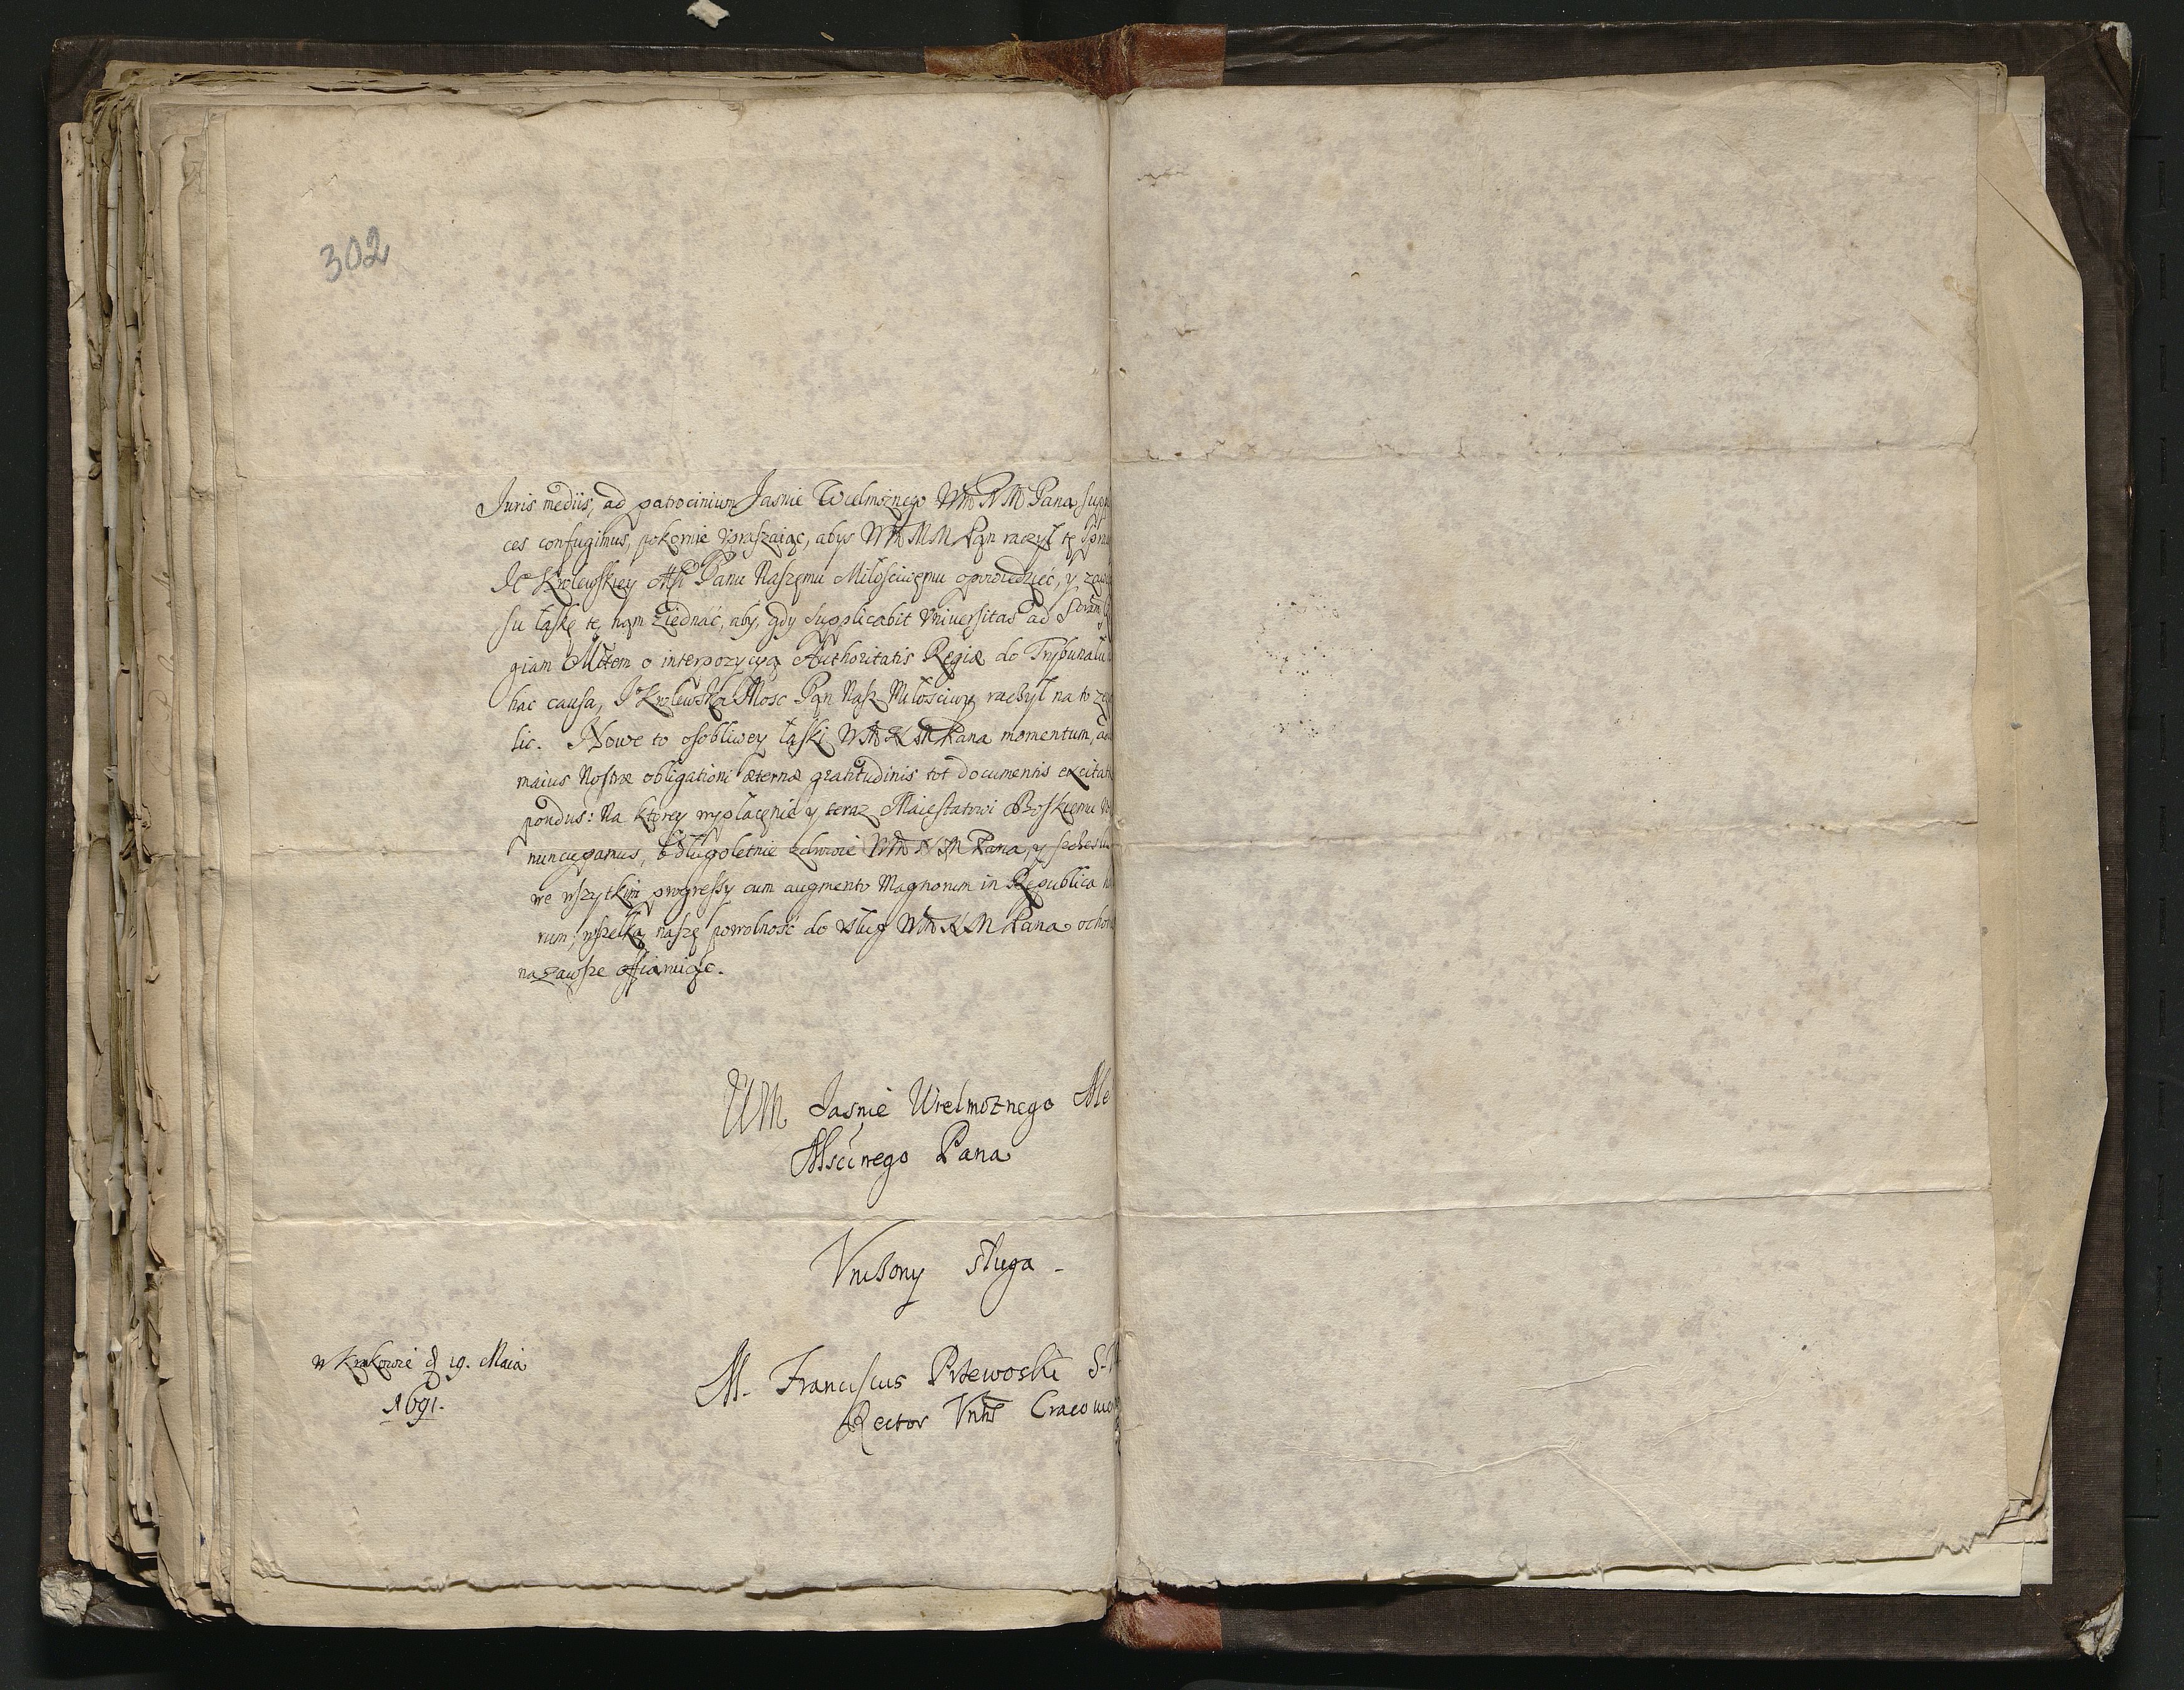 302
Juris mediis, ad patrocinium Jasnie Wielmożnego WM N M Pana sup
ces confugimus, pokornie vpraszaiąc, abys WM M M Pan raczył tę Spra
Je Krolewskiey Mci Panu Naszemu Miłosciwemu opowiedzieć, y
su łaskę tę nam ziednać, aby, gdy supplicabit Vniversitas ad
giam Mtem o interpozycyą Authoritatis Regiæ do Trybunału
hac causa, Je Krolewska Mosc Pan Nasz Miłosciwy raczył na to ze
lic. Nowe to osobliwey łaski WM N M Pana momentum, ad
maius Nostræ obligationi æternæ gratitudinis tot documentis excitat
pondus: Na ktorey wypłacenie y teraz Maiestatowi Boskiemu
nuncupamus, o długoletnie zdrowie WM N M Pana, y szczesli
we wszytkim progressy cum augmento Magnorum in Republica
rum, wszelką naszę powolnosć do vsług WM N M Pana ocho
na zawsze offiaruiąc.
WM Jasnie Wielmożnego
Mściwego Pana
Vniżony sługa
w Krakowie d 19. Maia
1691.
M. Franciscus Przewoski S.
Rector Vnits Cracovie